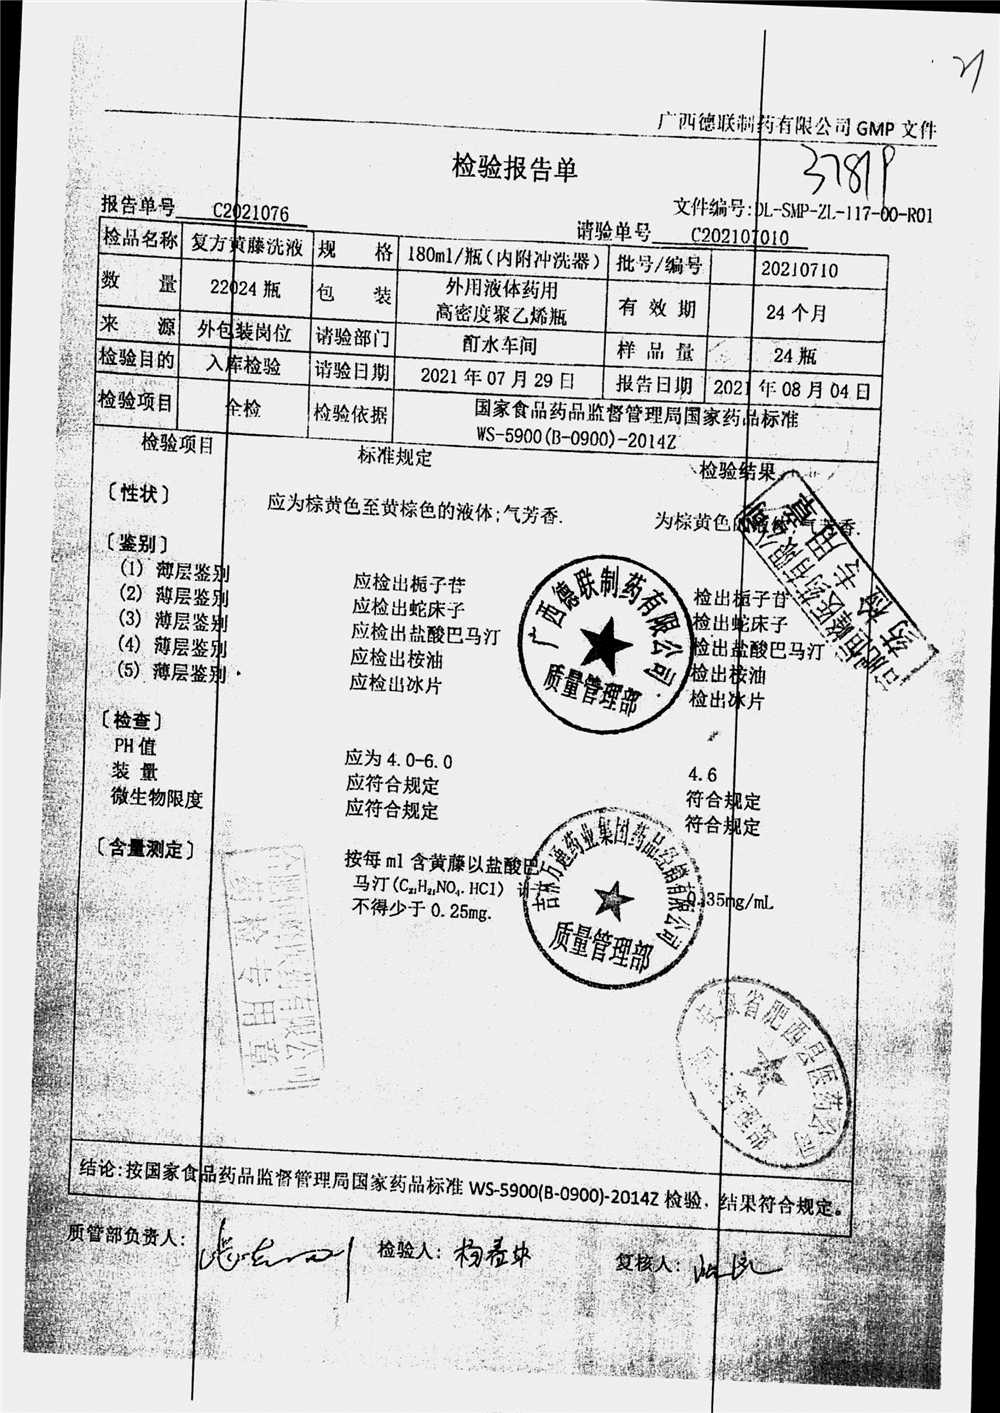 21
广西德联制药有限公司 GMP 文件
检验报告单
37819
报告单号 C2021076
文件编号:DL-SMP-ZL-117-00-R01
请验单号 C202107010
检品名称 复方黄藤洗液 规 格 180ml/瓶(内附冲洗器) 批号/编号 20210710
数 量 22024 瓶 包 装 外用液体药用 高密度聚乙烯瓶 有 效 期 24 个月
来 源 外包装岗位 请验部门 酊水车间 样 品 量 24 瓶
检验目的 入库检验 请验日期 2021 年 07 月 29 日 报告日期 2021 年 08 月 04 日
检验项目 全检 检验依据 国家食品药品监督管理局国家药品标准 WS-5900(B-0900)-2014Z
检验项目 标准规定 检验结果
〔性状〕 应为棕黄色至黄棕色的液体;气芳香. 为棕黄色的液体;气芳香.
〔鉴别〕
(1) 薄层鉴别 应检出栀子苷 检出栀子苷
(2) 薄层鉴别 应检出蛇床子 检出蛇床子
(3) 薄层鉴别 应检出盐酸巴马汀 检出盐酸巴马汀
(4) 薄层鉴别 应检出桉油 检出桉油
(5) 薄层鉴别 应检出冰片 检出冰片
〔检查〕
PH 值 应为 4.0-6.0 4.6
装 量 应符合规定 符合规定
微生物限度 应符合规定 符合规定
〔含量测定〕 按每 ml 含黄藤以盐酸巴
马汀(C₂₁H₂₁NO₄.HCl) 计 0.35mg/mL
不得少于 0.25mg.
广西德联制药有限公司
质量管理部
吉林万通药业集团药品经销有限公司
质量管理部
安徽省肥西县医药公司
药检专用章
药检专用章
结论:按国家食品药品监督管理局国家药品标准 WS-5900(B-0900)-2014Z 检验，结果符合规定。
质管部负责人: 检验人: 杨春 复核人: